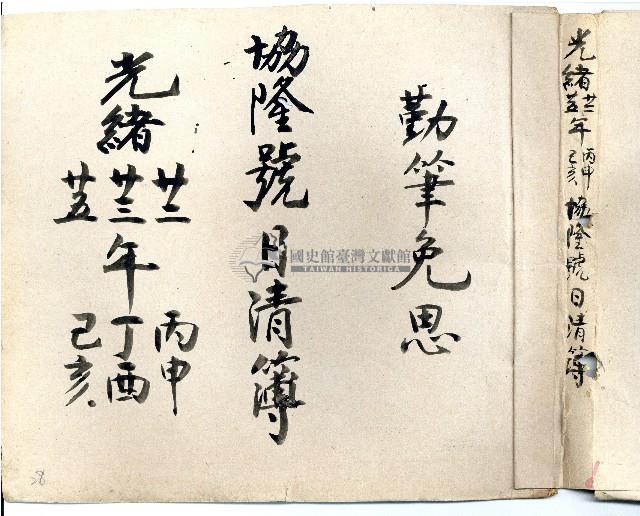 光緒廿二廿五年丙申己亥協隆號日清簿
勤筆免思
協隆號日清簿
光緒廿二廿三廿五年丙申丁酉己亥
國史館臺灣文獻館
TAIWAN HISTORICA
28